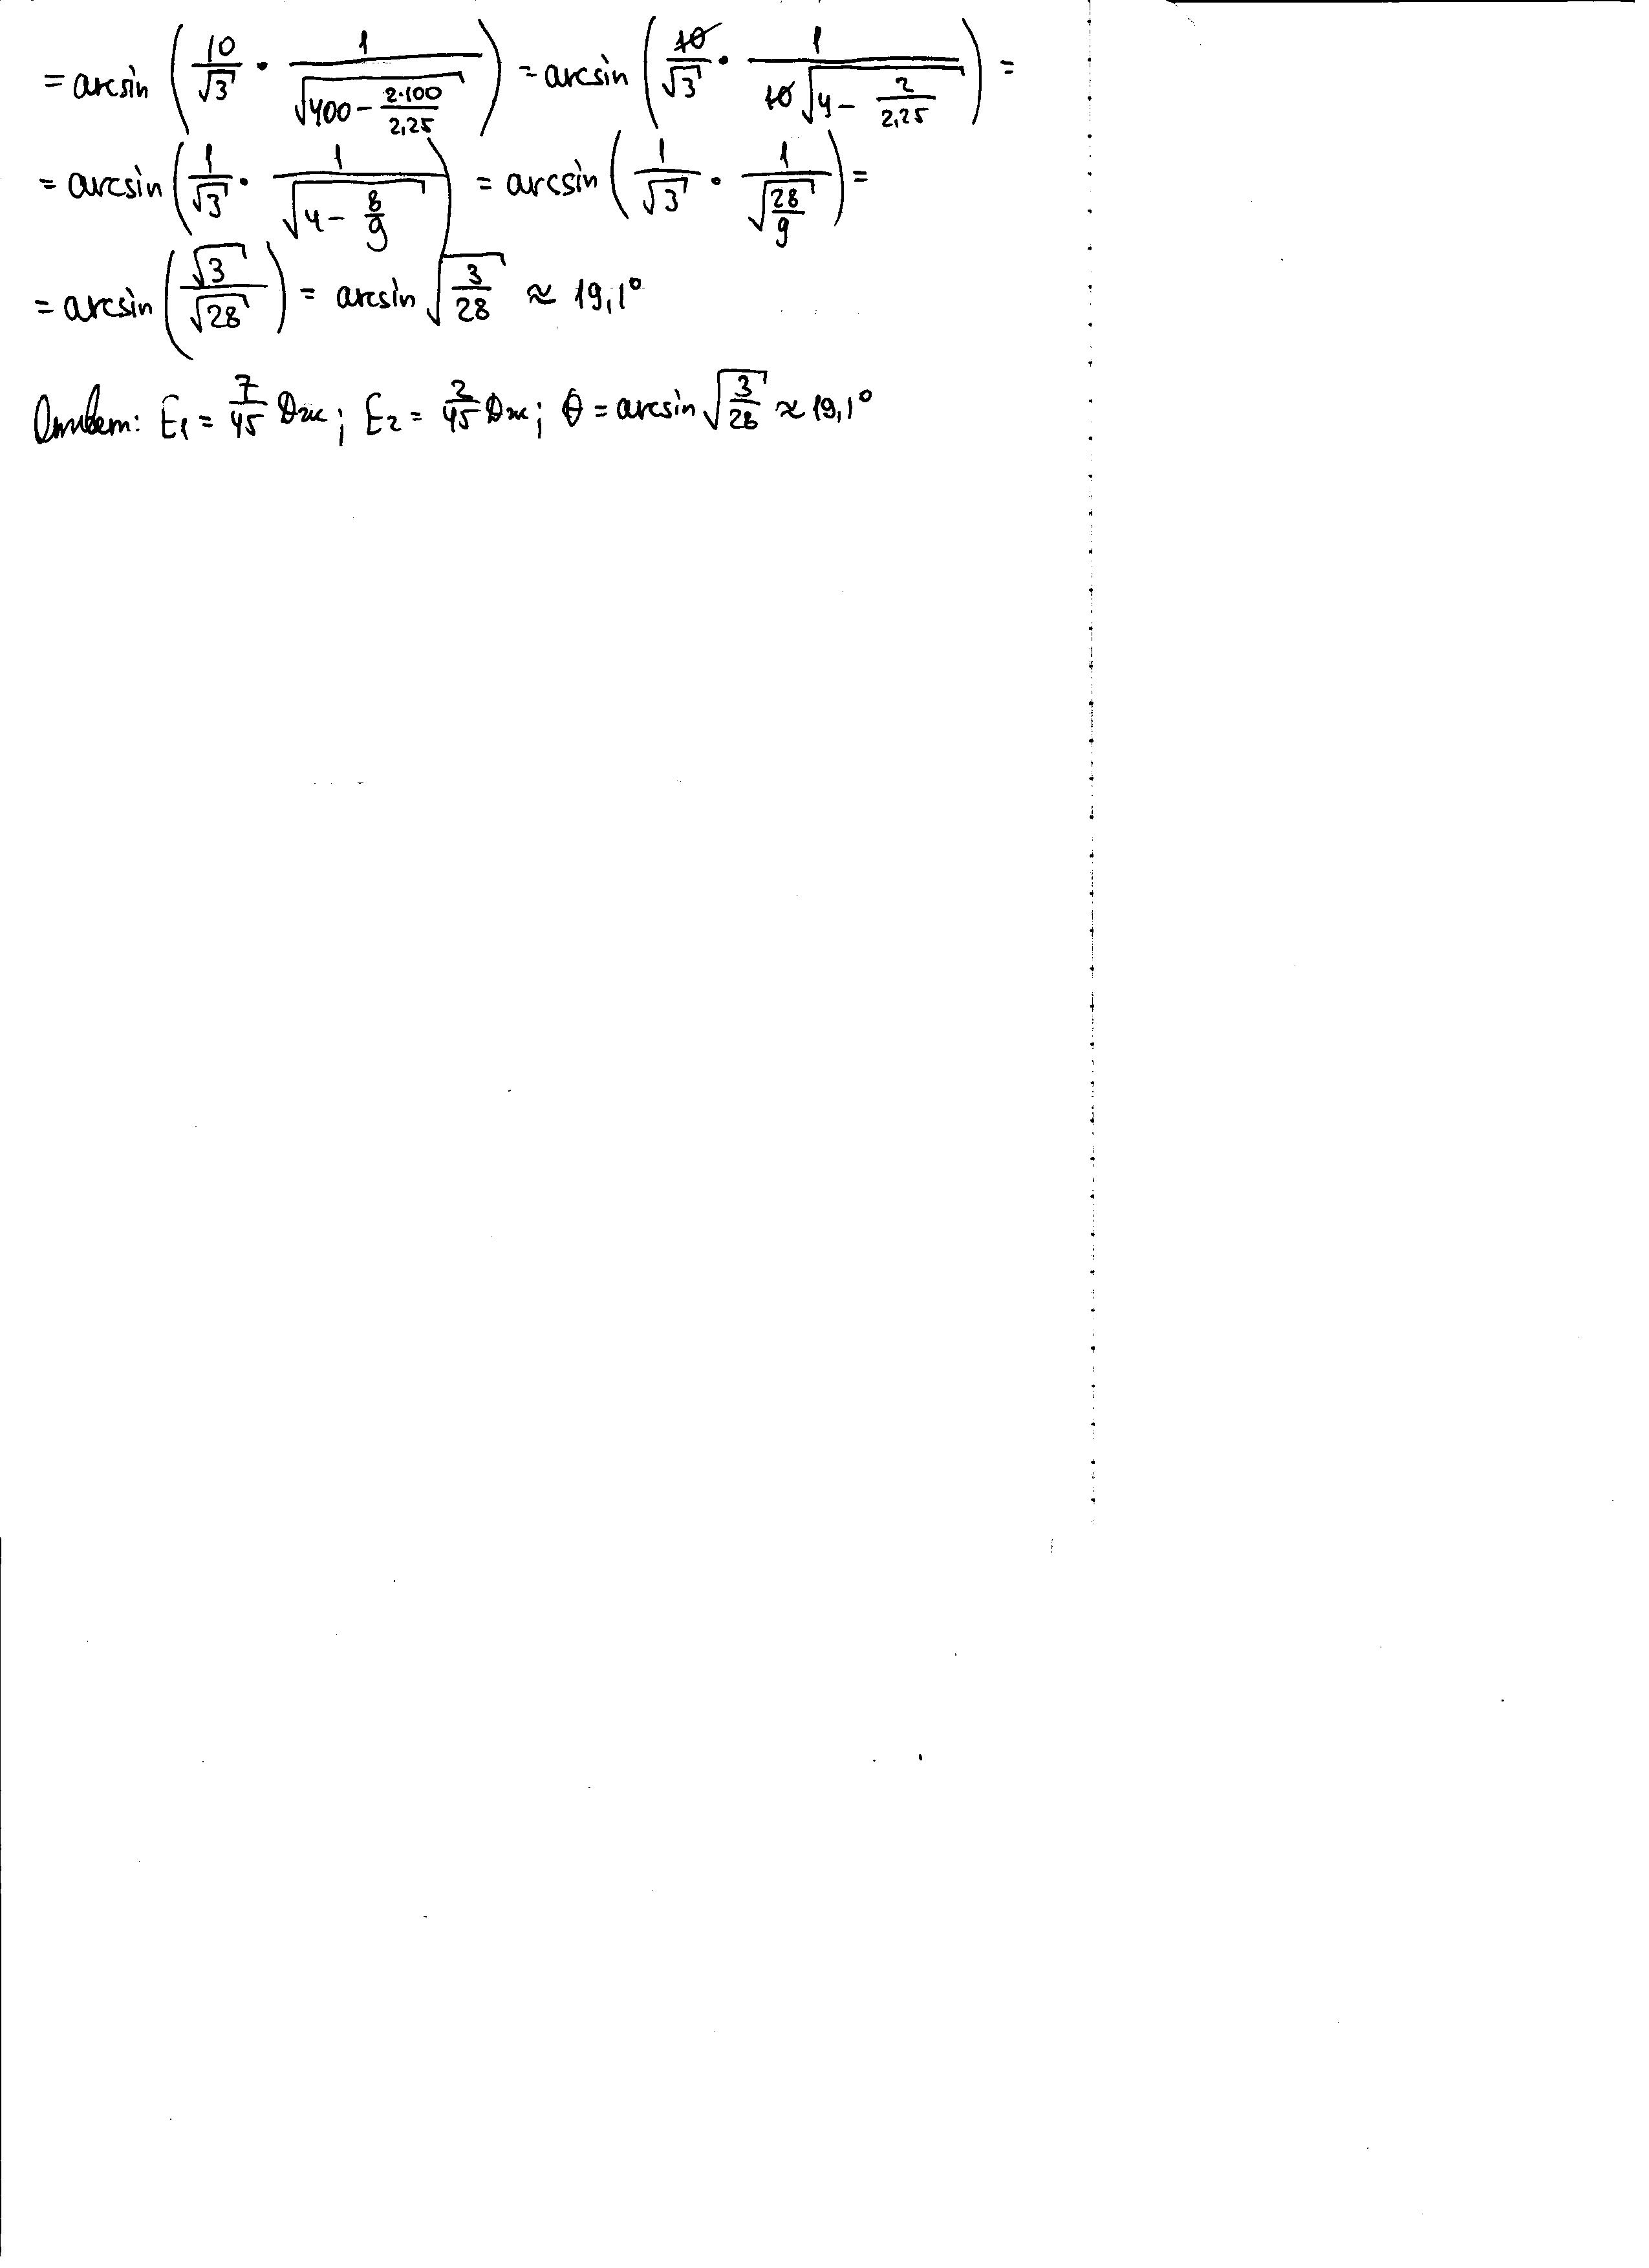 = arcsin (10/√3 · 1/√(400 − 2·100/2,25)) = arcsin (10/√3 · 1/(10√(4 − 2/2,25))) =
= arcsin (1/√3 · 1/√(4 − 8/9)) = arcsin (1/√3 · 1/√(28/9)) =
= arcsin (√3/√28) = arcsin √(3/28) ≈ 19,1°
Ответ: E₁ = 7/45 Дж; E₂ = 2/45 Дж; θ = arcsin √(3/28) ≈ 19,1°